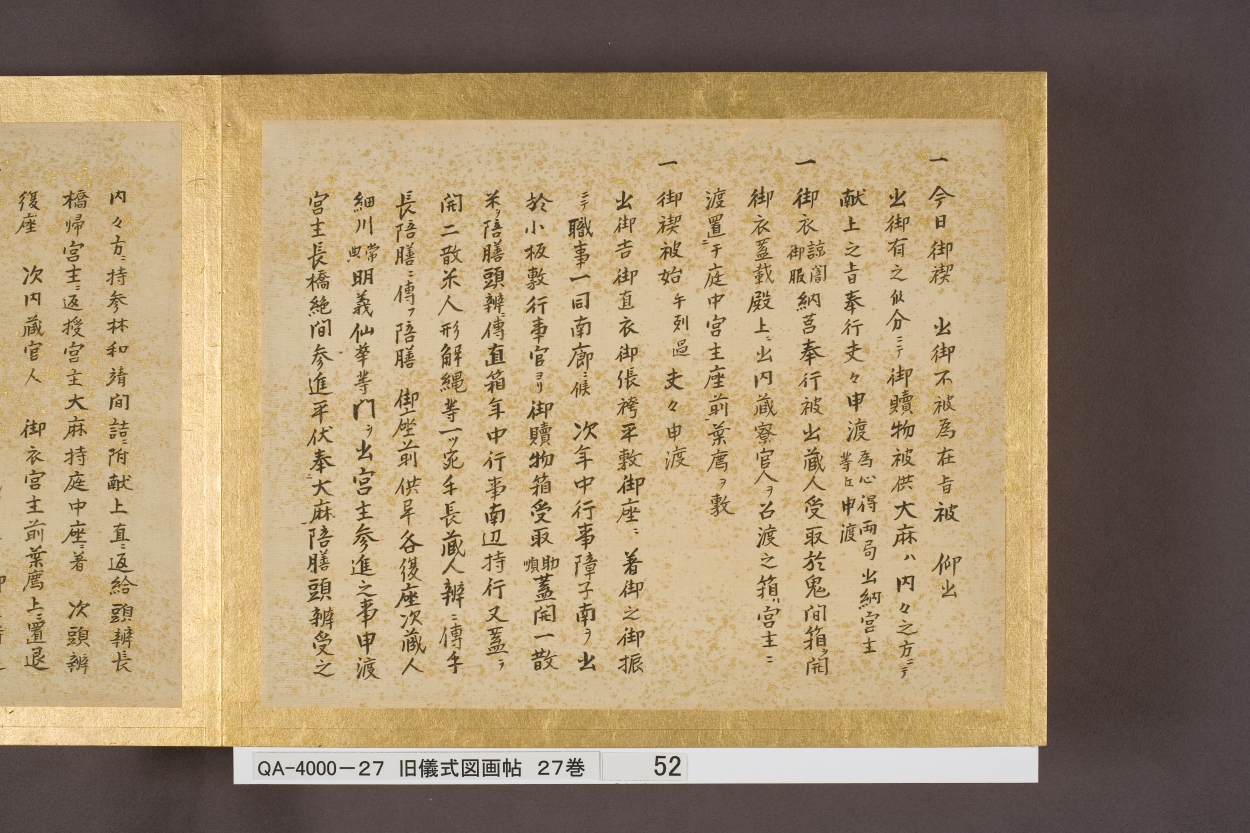 一 今日御禊 出御不被為在旨被 仰出
出御有之似分ニテ御贖物被供大麻ハ内々之方ニテ
献上之旨奉行丈々申渡 為心得両局 出納宮主等江申渡
一 御衣 諒闇御服 納莒奉行被出蔵人受取於鬼間箱ヲ開
御衣蓋載殿上ニ出内蔵寮官人ヲ召渡之箱ハ宮主ニ
渡置ニ于庭中宮主座前葉薦ヲ敷
一 御禊被始 午刻過 丈々申渡
出御吉御直衣御張袴平敷御座ニ 着御之御振
ニテ職事一同南廊ニ候 次年中行事障子南ヲ出
於小板敷行事官ヨリ御贖物箱受取 助順 蓋開一散
米ヲ陪膳頭辨ニ傳直箱年中行事南辺持行又蓋ヲ
開二散米人形解縄等一ツ宛手長蔵人辨ニ傳手
長陪膳ニ傳フ陪膳 御座前供早各復座次蔵人
細川 常典 明義仙華等門ヲ出宮主参進之事申渡
宮主長橋絶間参進平伏奉大麻陪膳頭辨受之
内々方ニ持参林和靖間詰ニ附献上直ニ返給頭辨長
橋帰宮主ニ返授宮主大麻持庭中座ニ着 次頭辨
復座 次内蔵官人 御衣宮主前葉薦上ニ置退
QA-4000-27 旧儀式図画帖 27巻 52